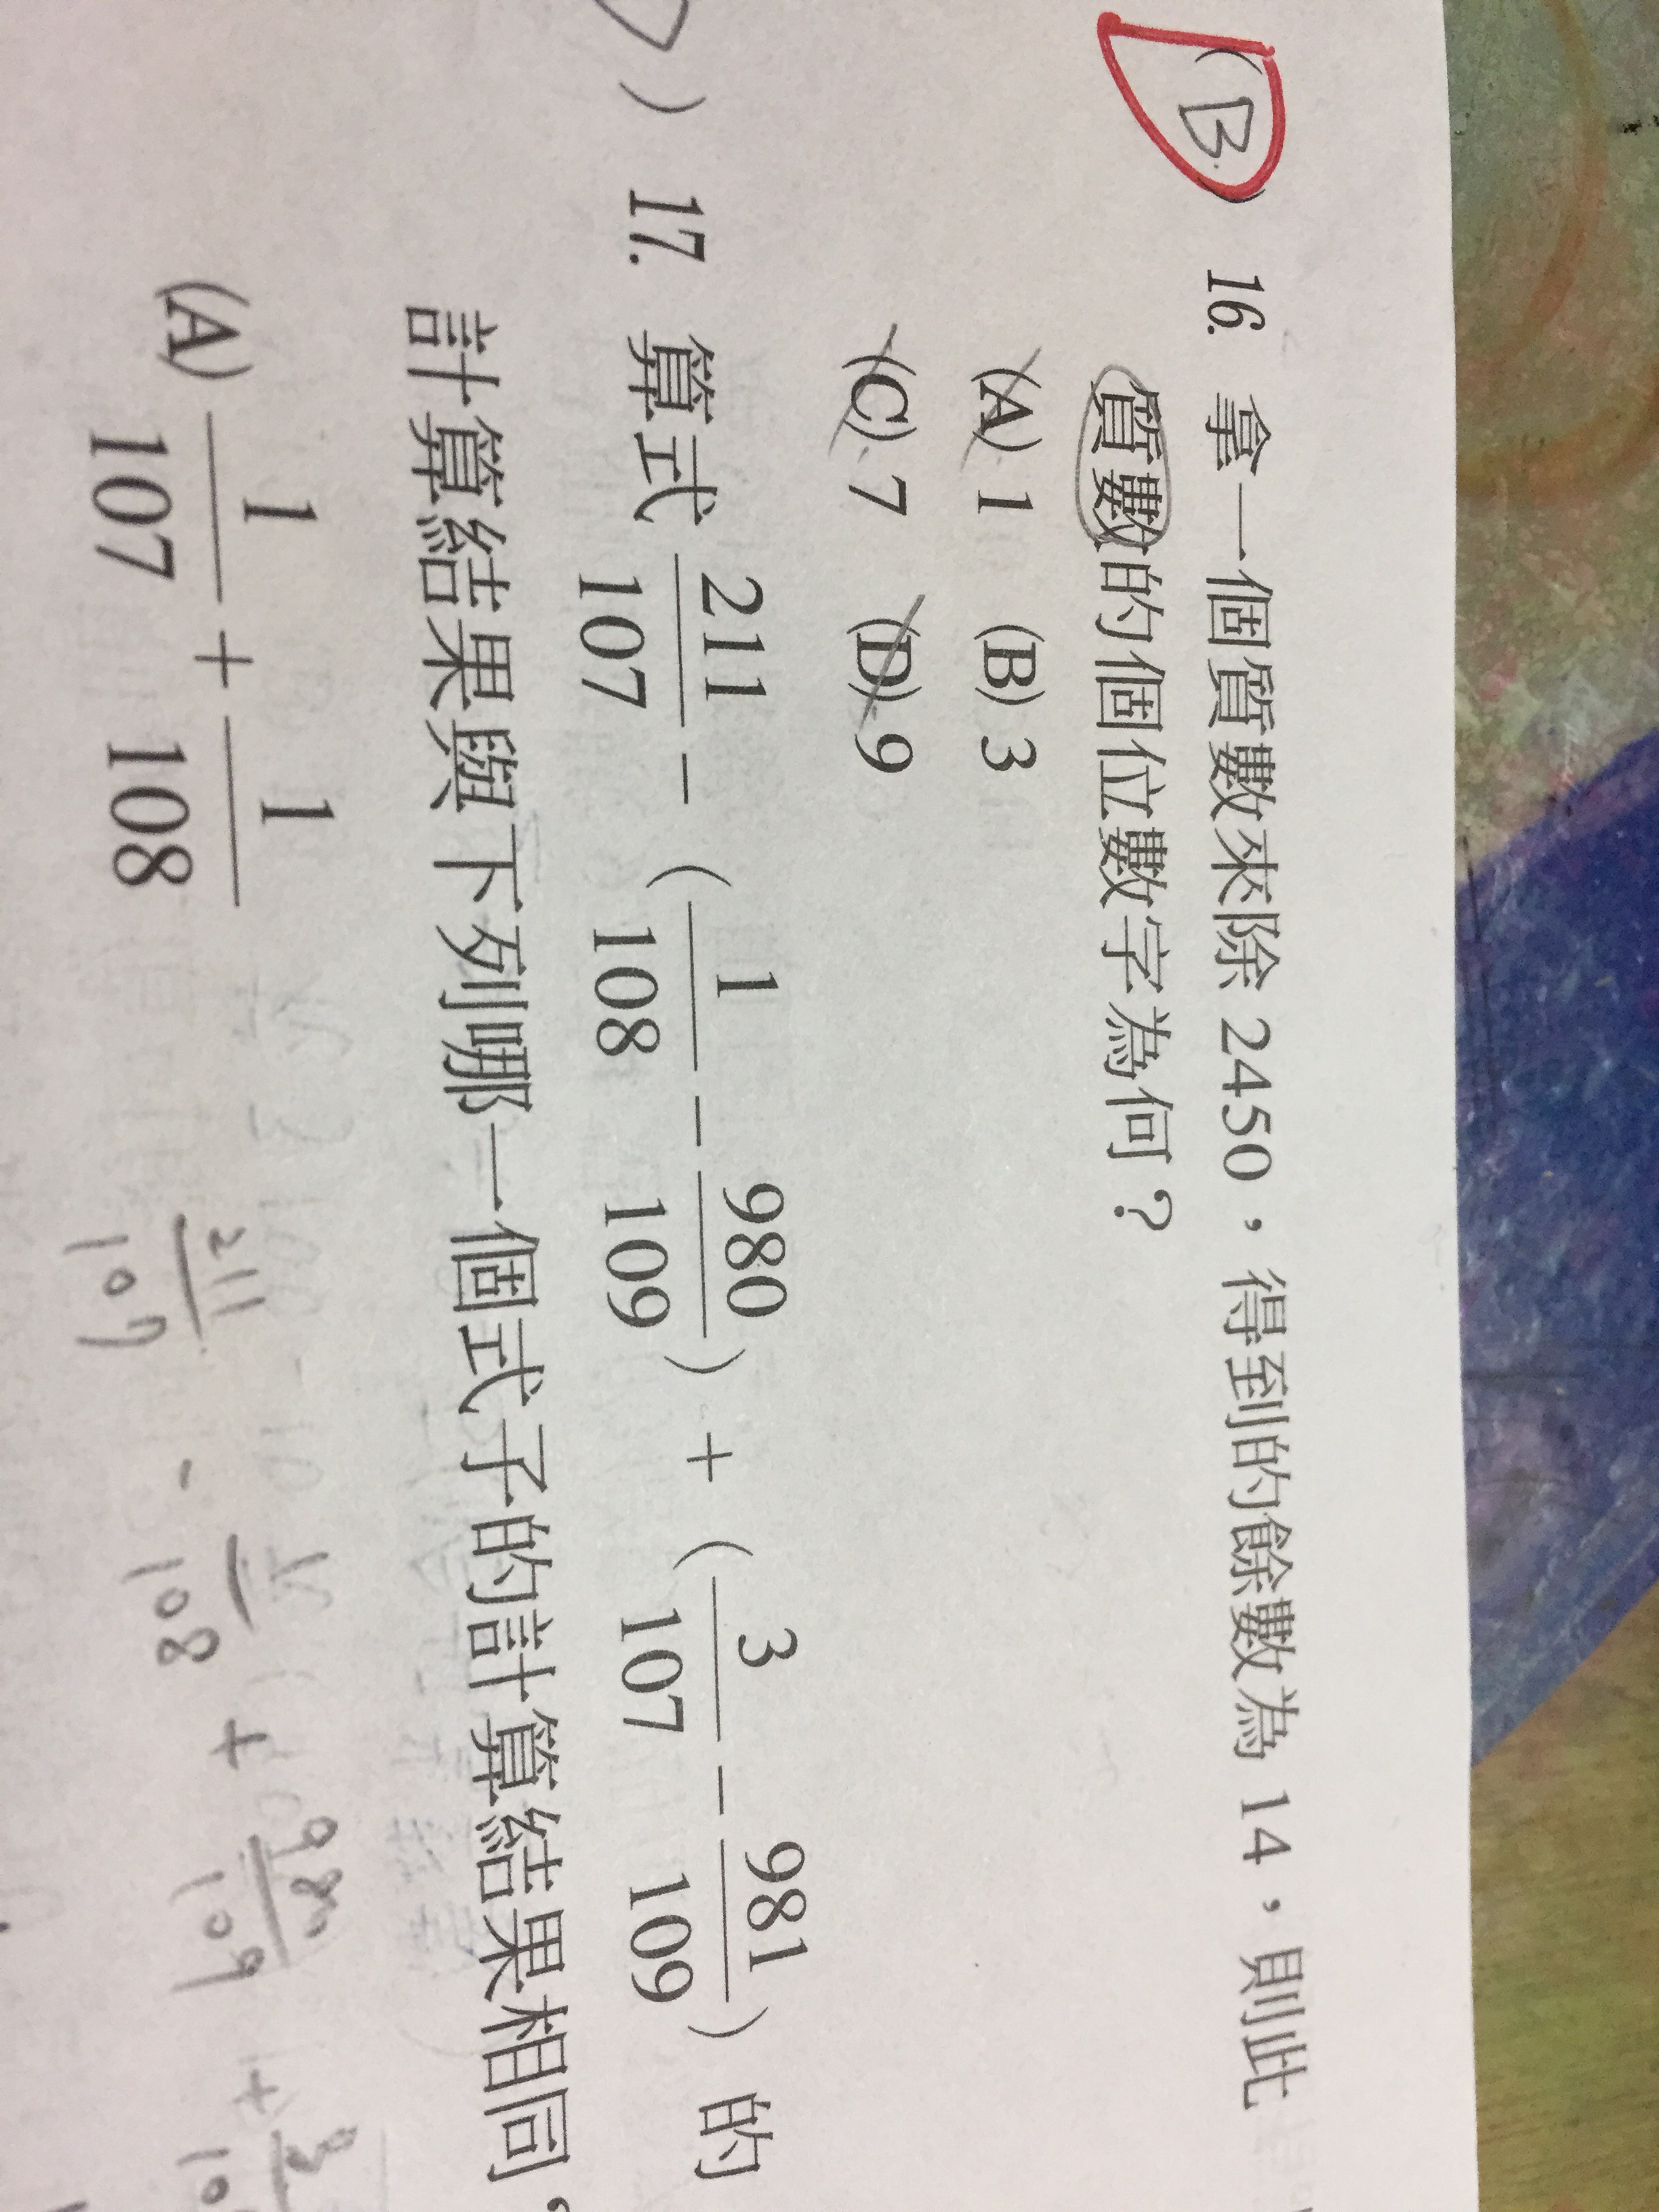 (B) 16. 拿一個質數來除 2450,得到的餘數為 14,則此
質數的個位數字為何?
(A) 1 (B) 3
(C) 7 (D) 9
) 17. 算式 211/107 - ( 1/108 - 980/109 ) + ( 3/107 - 981/109 ) 的
計算結果與下列哪一個式子的計算結果相同
(A) 1/107 + 1/108
211/107 - 1/108 + 980/109 +